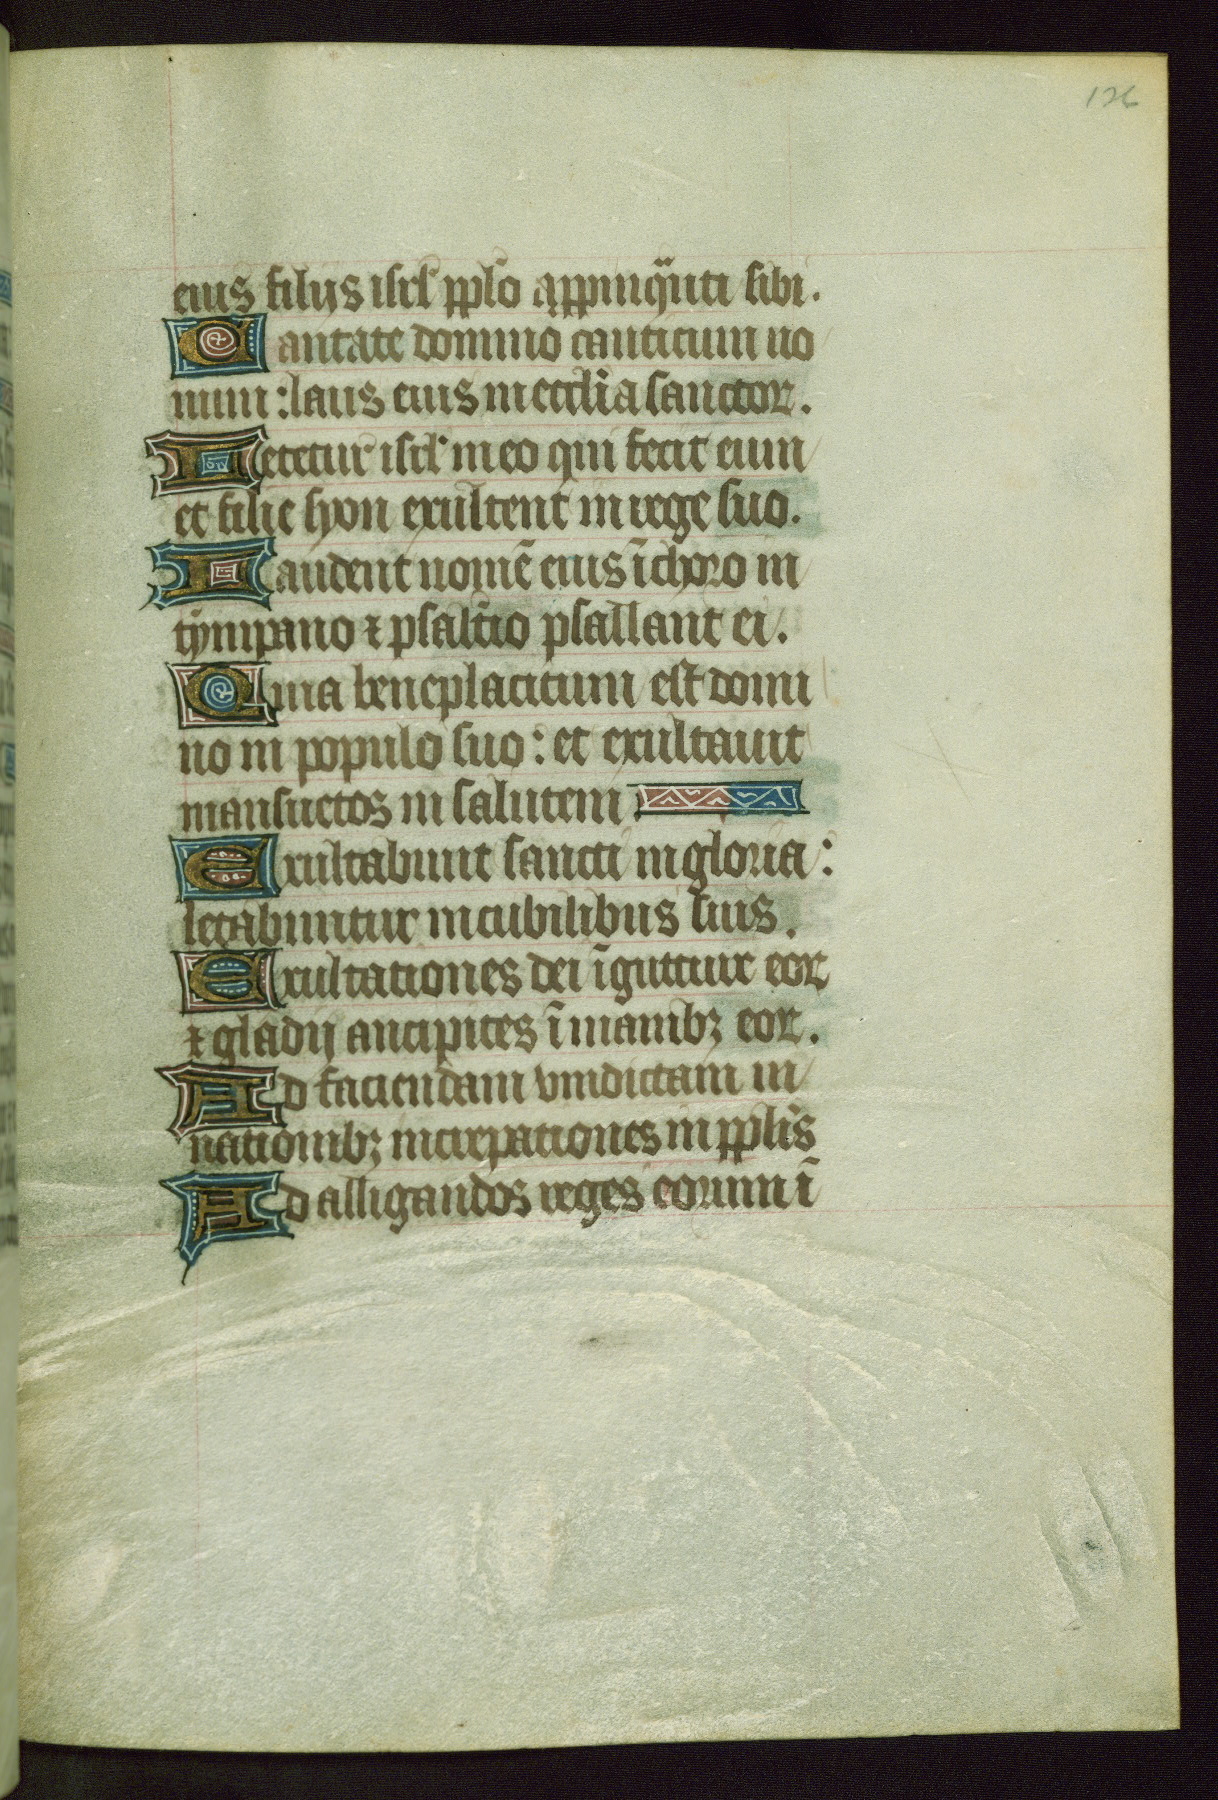 126
eius filijs isrl' pplo appinqu̅ti sibi.
Cantate domino canticum no
uum : laus eius in eccl̅ia sanctoꝝ.
Letetur isrl' in eo qui fecit eum
et filie syon exultent in rege suo.
Laudent nome̅ eius i̅ choro in
tympano ⁊ psalt̅io psallant ei.
Quia beneplacitum est domi
no in populo suo : et exultauit
mansuetos in salutem
Exultabunt sancti in gloria :
letabuntur in cubilibus suis.
Exultationes dei i̅ gutture eoꝝ
⁊ gladij ancipites i̅ manibꝫ eoꝝ.
Ad faciendam vindictam in
nationibꝫ increpationes in ppl̅is
Ad alligandos reges eorum i̅